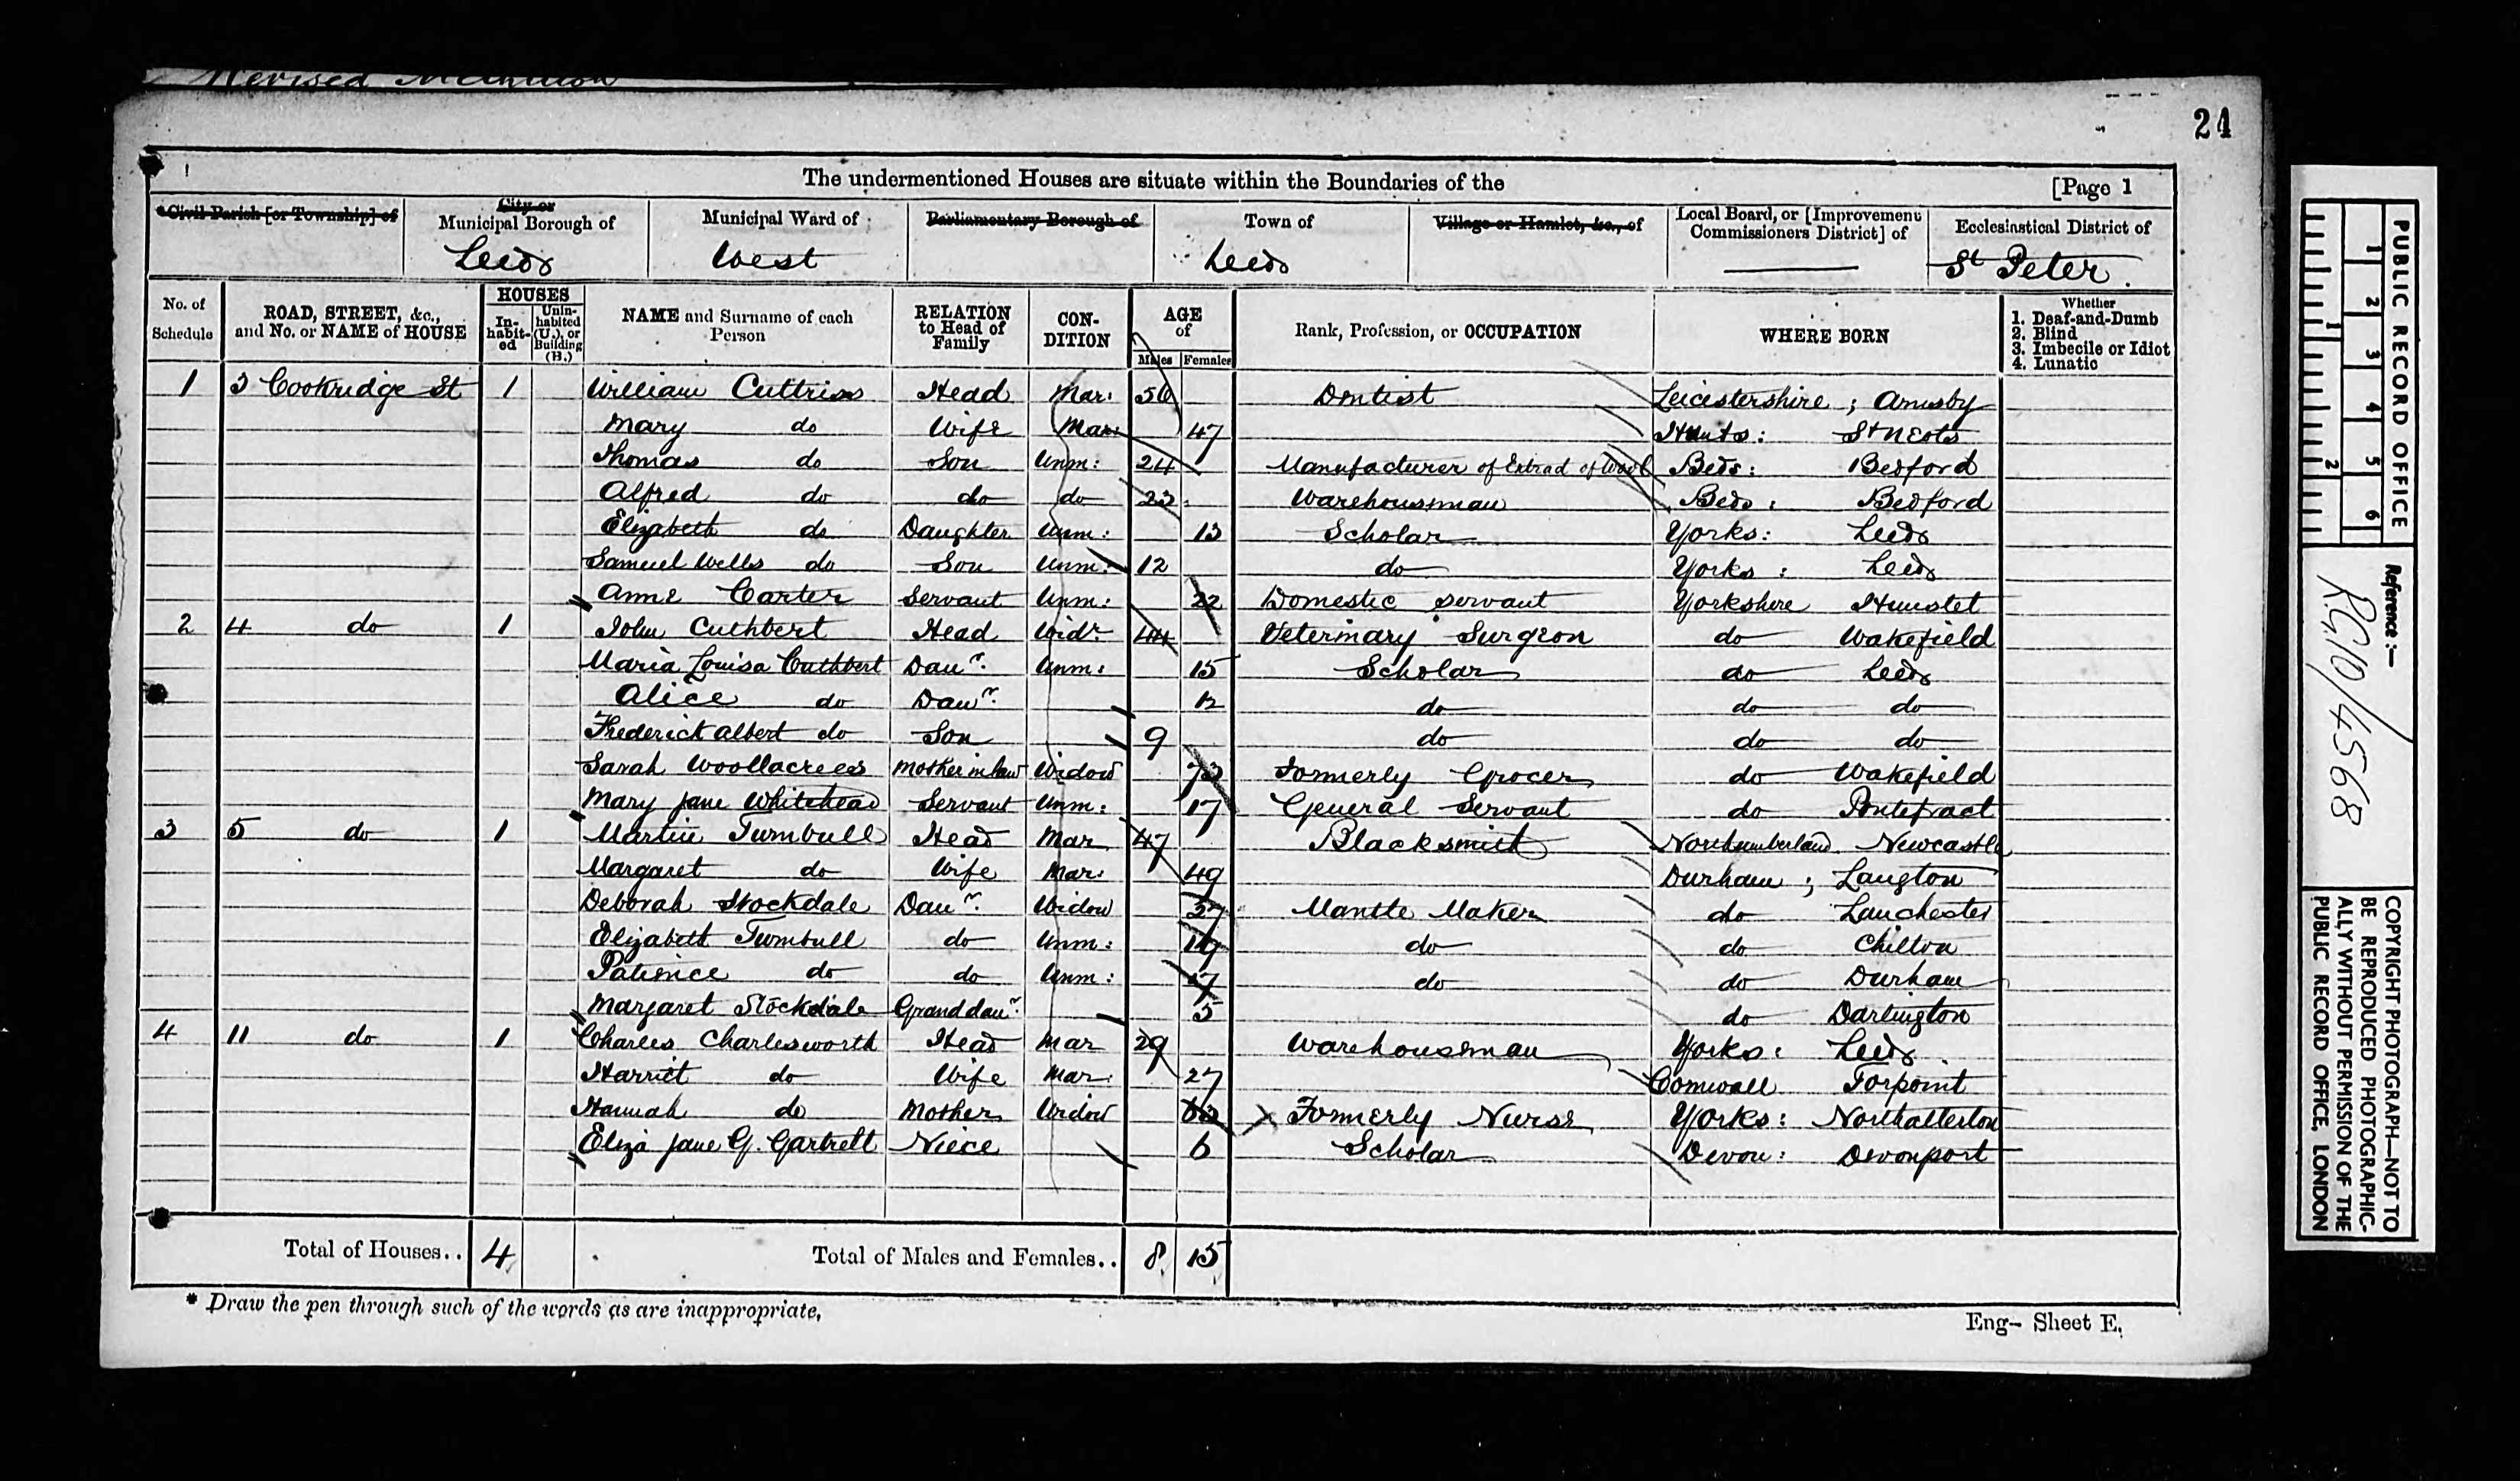 Revised
24
The undermentioned Houses are situate within the Boundaries of the [Page 1
*Civil Parish [or Township] of
City or Municipal Borough of
Leeds
Municipal Ward of
West
Parliamentary Borough of
Town of
Leeds
Village or Hamlet, &c., of
Local Board, or [Improvement Commissioners District] of
Ecclesiastical District of
St Peter
No. of Schedule
ROAD, STREET, &c., and No. or NAME of HOUSE
HOUSES
In-habit-ed
Unin-habited (U.), or Building (B.)
NAME and Surname of each Person
RELATION to Head of Family
CON-DITION
AGE of
Males Females
Rank, Profession, or OCCUPATION
WHERE BORN
Whether
1. Deaf-and-Dumb
2. Blind
3. Imbecile or Idiot
4. Lunatic
1 3 Cookridge St 1 William Cuttriss Head Mar: 56 Dentist Leicestershire; Arnsby
Mary do Wife Mar: 47 Hunts: St Neots
Thomas do Son Unm: 24 Manufacturer of Extract of Wool Beds: Bedford
Alfred do do do 22 Warehouseman Beds: Bedford
Elizabeth do Daughter Unm: 13 Scholar Yorks: Leeds
Samuel Wells do Son Unm: 12 do Yorks: Leeds
Anne Carter Servant Unm: 22 Domestic Servant Yorkshire Hunslet
2 4 do 1 John Cuthbert Head Widr 44 Veterinary Surgeon do Wakefield
Maria Louisa Cuthbert Daur. Unm: 15 Scholar do Leeds
Alice do Daur. 12 do do do
Frederick Albert do Son 9 do do do
Sarah Woollacrees Mother in law Widow Formerly Grocer do Wakefield
Mary Jane Whitehead Servant Unm: 17 General Servant do Pontefract
3 5 do 1 Martin Turnbull Head Mar 47 Blacksmith Northumberland Newcastle
Margaret do Wife Mar: 49 Durham; Langton
Deborah Stockdale Daur. Widow 27 Mantle Maker do Lanchester
Elizabeth Turnbull do Unm: 19 do do Chilton
Patience do do Unm: 17 do do Durham
Margaret Stockdale Granddaur. 5 do Darlington
4 11 do 1 Charles Charlesworth Head Mar 29 Warehouseman Yorks: Leeds
Harriet do Wife Mar: 27 Cornwall Torpoint
Hannah do Mother Widow Formerly Nurse Yorks: Northallerton
Eliza Jane G. Gartrell Niece 6 Scholar Devon: Devonport
Total of Houses.. 4 Total of Males and Females.. 8 15
* Draw the pen through such of the words as are inappropriate.
Eng- Sheet E.
PUBLIC RECORD OFFICE
1 2 3 4 5 6
1 2
Reference :-
R.G.10/4568
COPYRIGHT PHOTOGRAPH—NOT TO
BE REPRODUCED PHOTOGRAPHIC-
ALLY WITHOUT PERMISSION OF THE
PUBLIC RECORD OFFICE, LONDON